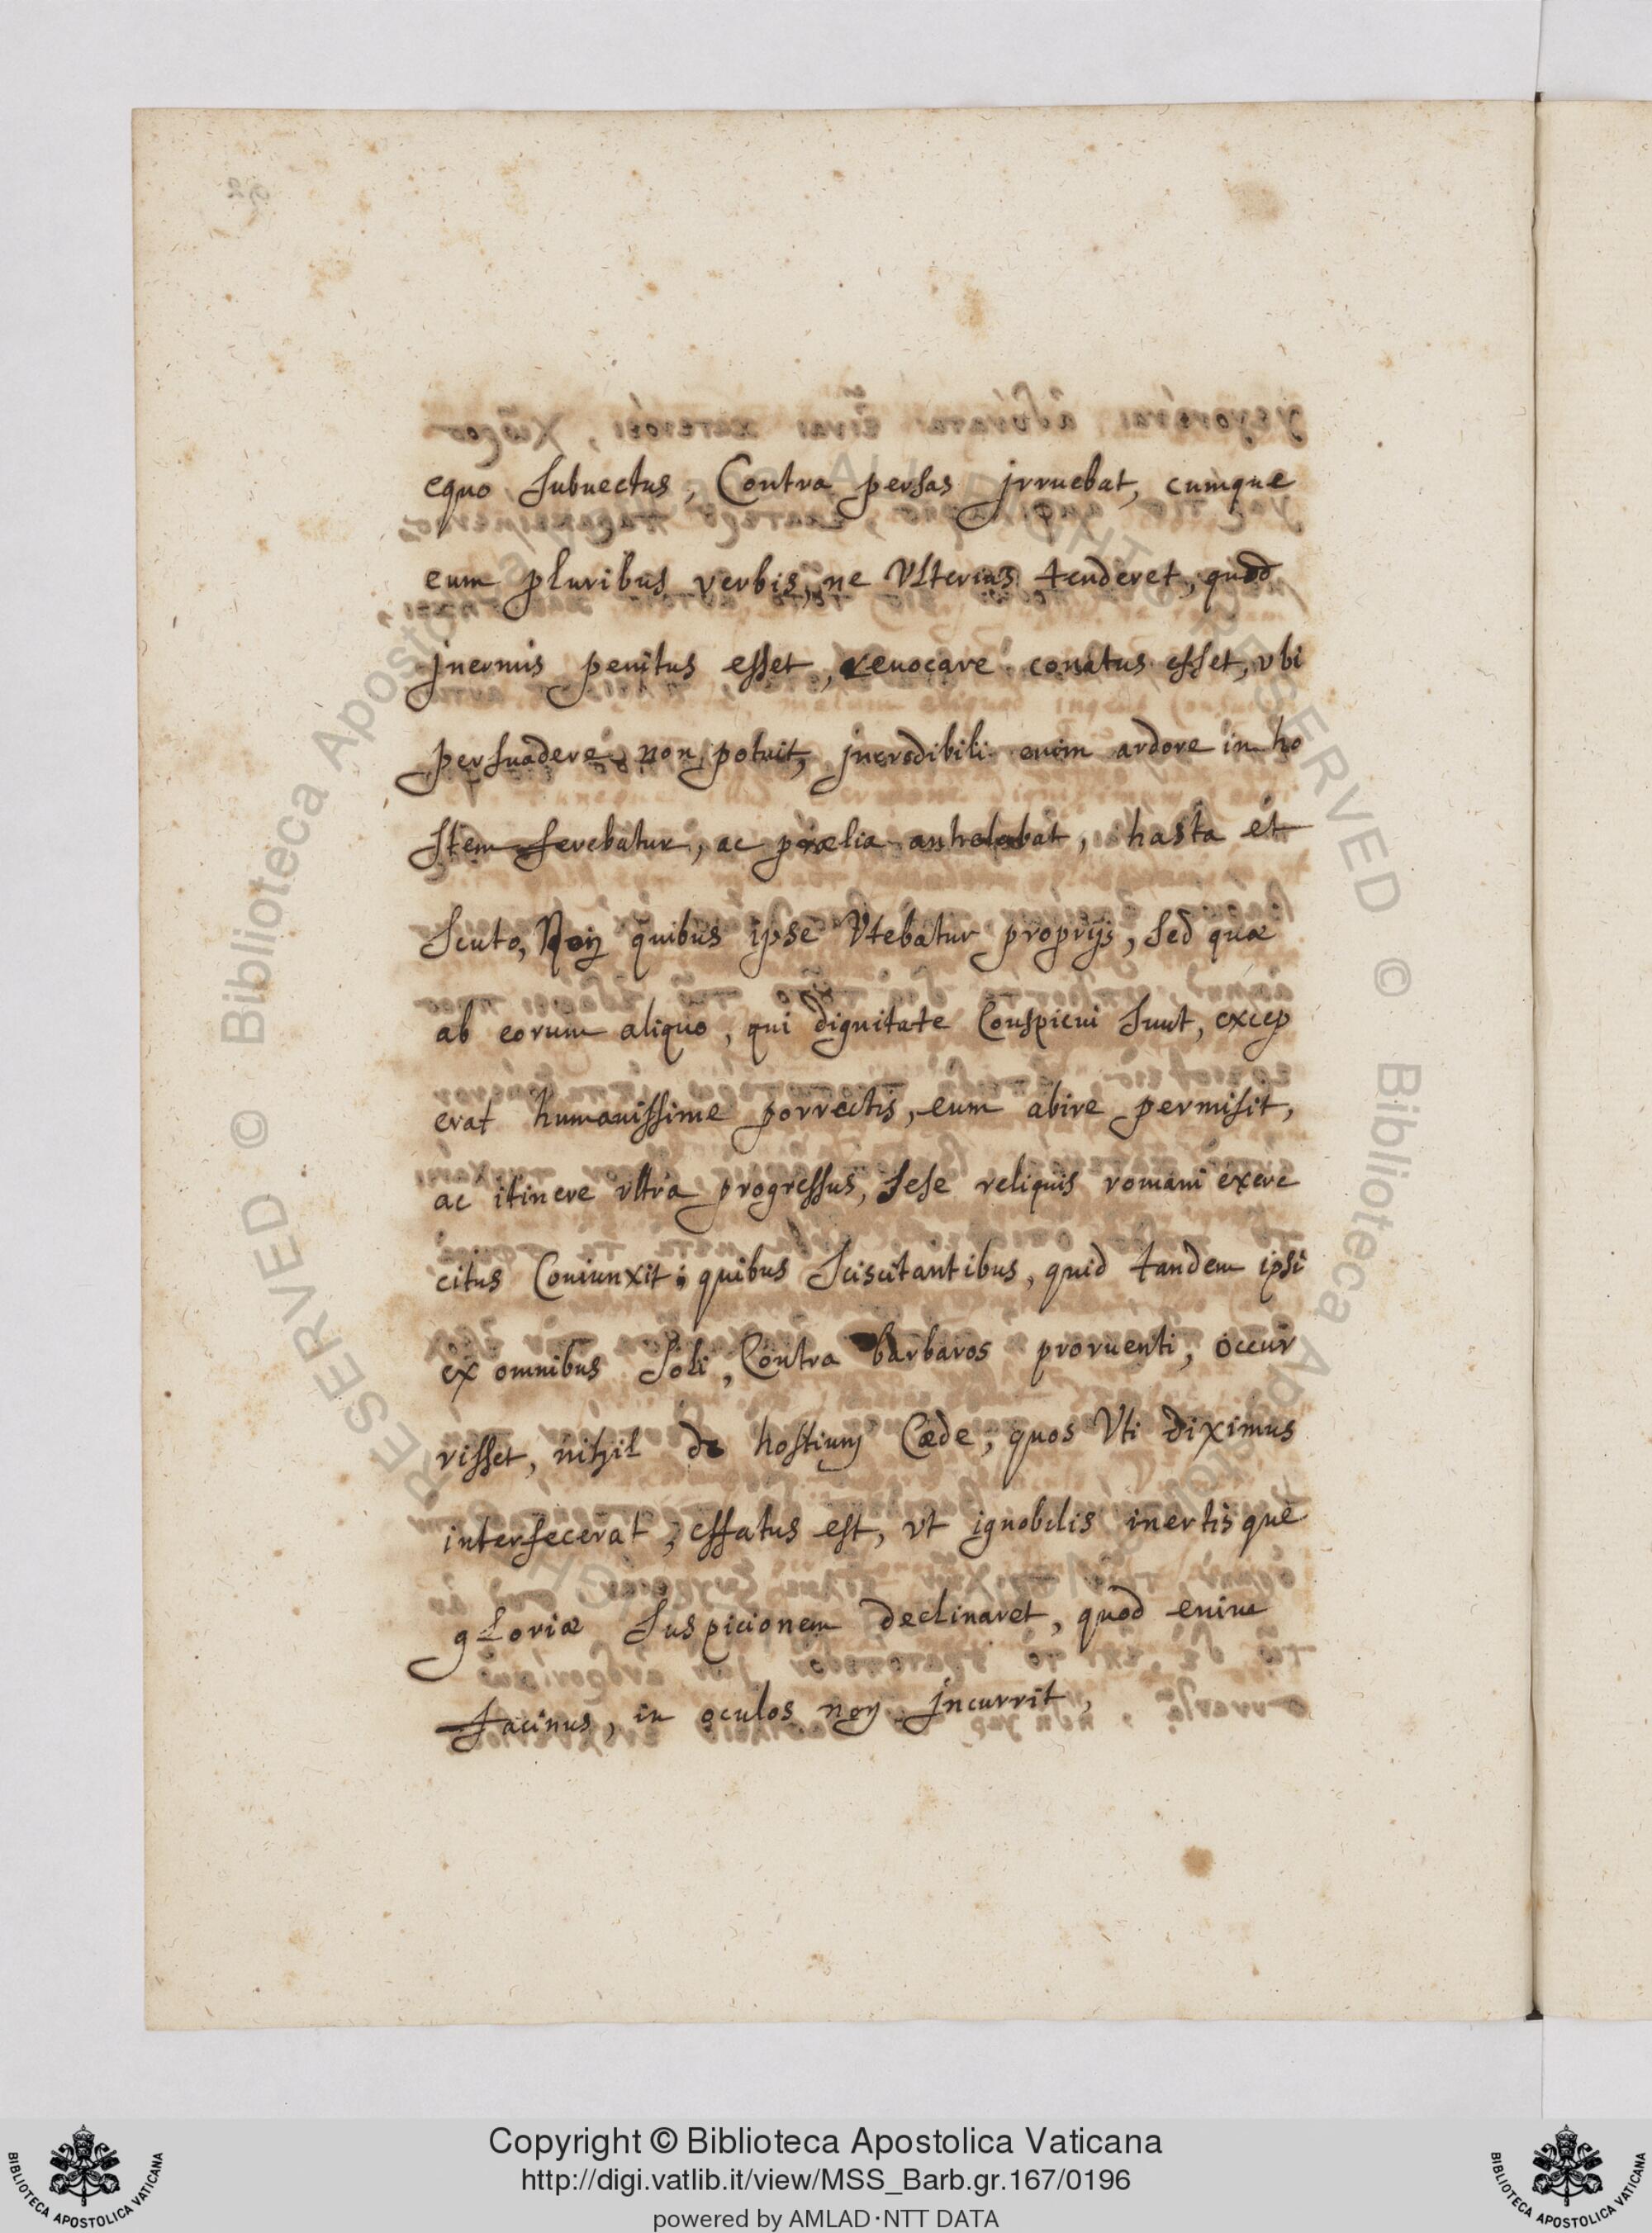 equo subuectus, Contra persas jrruebat, cumque
eum pluribus verbis, ne Vlterius tenderet, quod
jnermis penitus esset, reuocare conatus esset, vbi
persuadere non potuit, jncredibili enim ardore in ho
stem ferebatur, ac prælia anhelabat, hasta et
scuto, Non quibus ipse Vtebatur proprijs, sed quæ
ab eorum aliquo, qui dignitate Conspicui sunt, excep
erat humanissime porrectis, eum abire permisit,
ac itinere vltra progressus, sese reliquis romani exer
citus Coniunxit; quibus sciscitantibus, quid tandem ipsi
ex omnibus soli, Contra barbaros proruenti, occur
risset, nihil de hostium Cæde, quos Vti diximus
interfecerat, effatus est, vt ignobilis inertisque
gloriæ suspicionem declinaret, quod enim
facinus, in oculos non jncurrit,
Copyright © Biblioteca Apostolica Vaticana
http://digi.vatlib.it/view/MSS_Barb.gr.167/0196
powered by AMLAD·NTT DATA
BIBLIOTECA APOSTOLICA VATICANA
BIBLIOTECA APOSTOLICA VATICANA